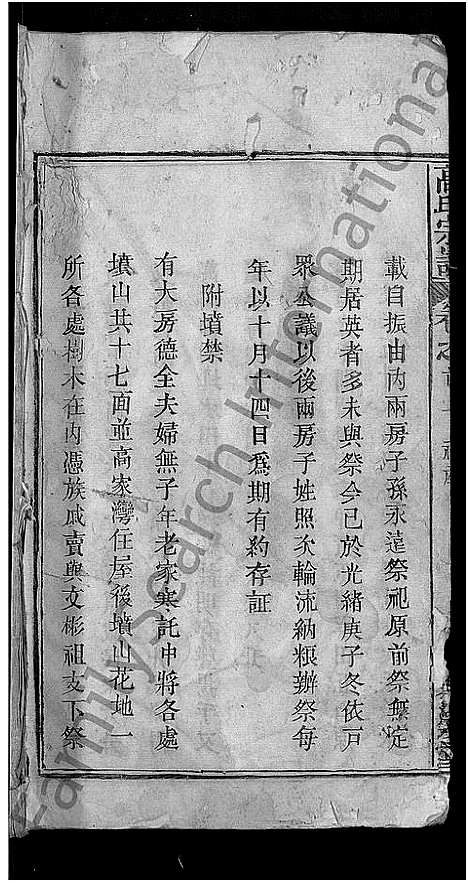 高氏宗譜
載自振由內兩房子孫永遠祭祀原前祭無定
期居英者多未與祭今已於光緒庚子冬依戸
眾公議以後兩房子姓照次輪流納粮辦祭每
年以十月十四日爲期有約存証
附墳禁
有大房德全夫婦無子年老家寒託中將各處
墳山共十七面並高家灣住屋後墳山花地一
所各處樹木在內憑族戚賣與文彬祖支下祭
FamilySearch International